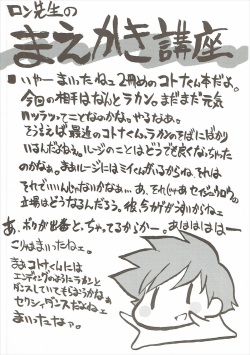 ロン先生の
まえがき講座
■いやーまいったねェ2冊めのコトナくん本だよ。
今回の相手はなんとラカン。まだまだ元気
ってことなのかな。やるなあ。
そういえば最近のコトナくん、ラカンのそばにばかり
いるんだよねえ。ルージのことはどうでも良くなっちゃった
のかなぁ。まぁルージにはミィくんがいるからねェ、それは
それでいいんじゃないかなぁ…あ、それじゃあセイジュウロウの
立場はどうなるんだろう。彼、今カゲがうすいからねェ
あ、ボクが出番とっちゃてるからかー。あははははー
こりゃまいったねェ。
まぁコトナくんには
エンディングのようにラカンと
ダンスしていてもらおうかなぁ
セクシィダンスだよねェ
まいったなァ。